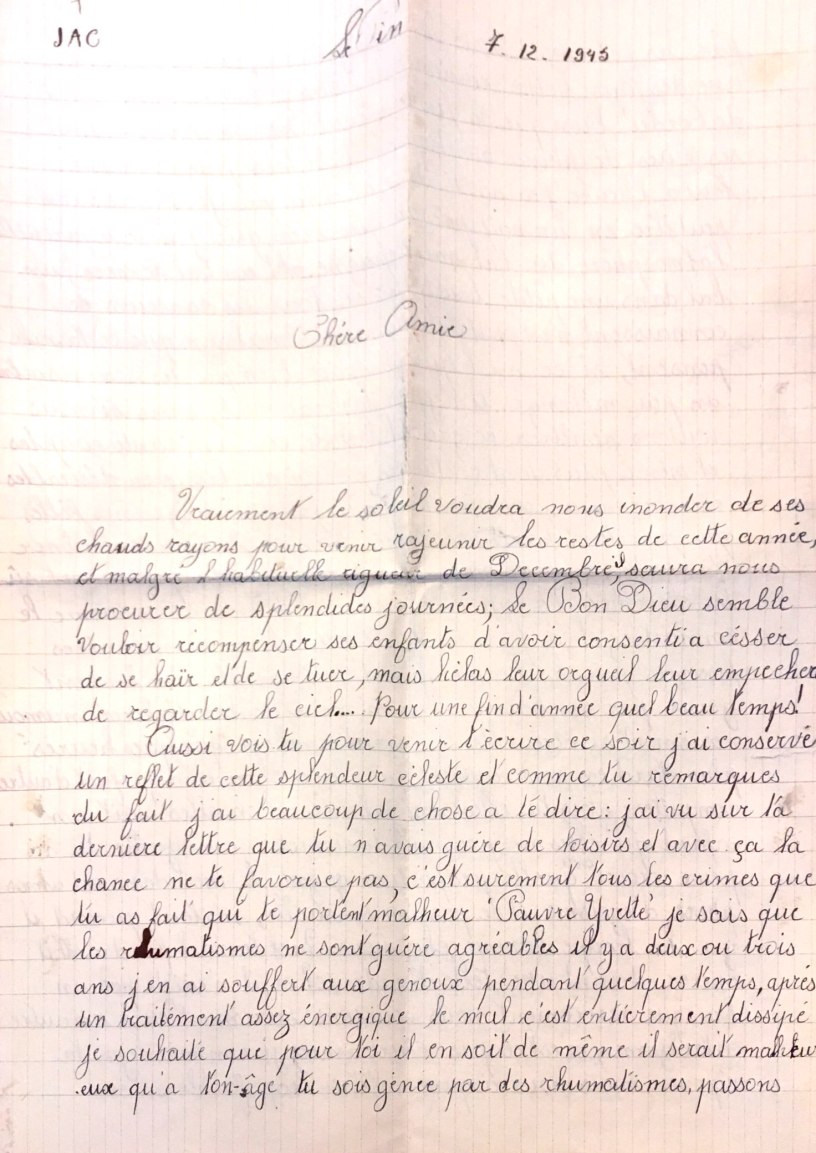 JAC
Le 7. 12. 1945
Chére Amie
Vraiement le soleil voudra nous inonder de ses
chauds rayons pour venir rajeunir les restes de cette année,
et malgré l'habituelle rigueur de Decembre, il saura nous
procurer de splendides journées; Le Bon Dieu semble
vouloir récompenser ses enfants d'avoir consenti a césser
de se haïr et de se tuer, mais hélas leur orgueil leur empecher
de regarder le ciel.... Pour une fin d'année quel beau temps!
Aussi vois tu pour venir t'écrire ce soir j'ai conservé
un reflet de cette splendeur céleste et comme tu remarques
du fait j'ai beaucoup de chose a té dire: j'ai vu sur ta
derniere lettre que tu n'avais guére de loisirs et avec ça la
chance ne te favorise pas, c'est surement tous les crimes que
tu as fait qui te portent malheur "Pauvre Yvette" je sais que
les rhumatismes ne sont guére agréables il y a deux ou trois
ans j'en ai souffert aux génoux pendant quelques temps, aprés
un traitément assez énergique le mal c'est entiérement dissipé
je souhaite que pour toi il en soit de même il serait malheur
eux qu'a ton-âge tu sois génée par des rhumatismes, passons